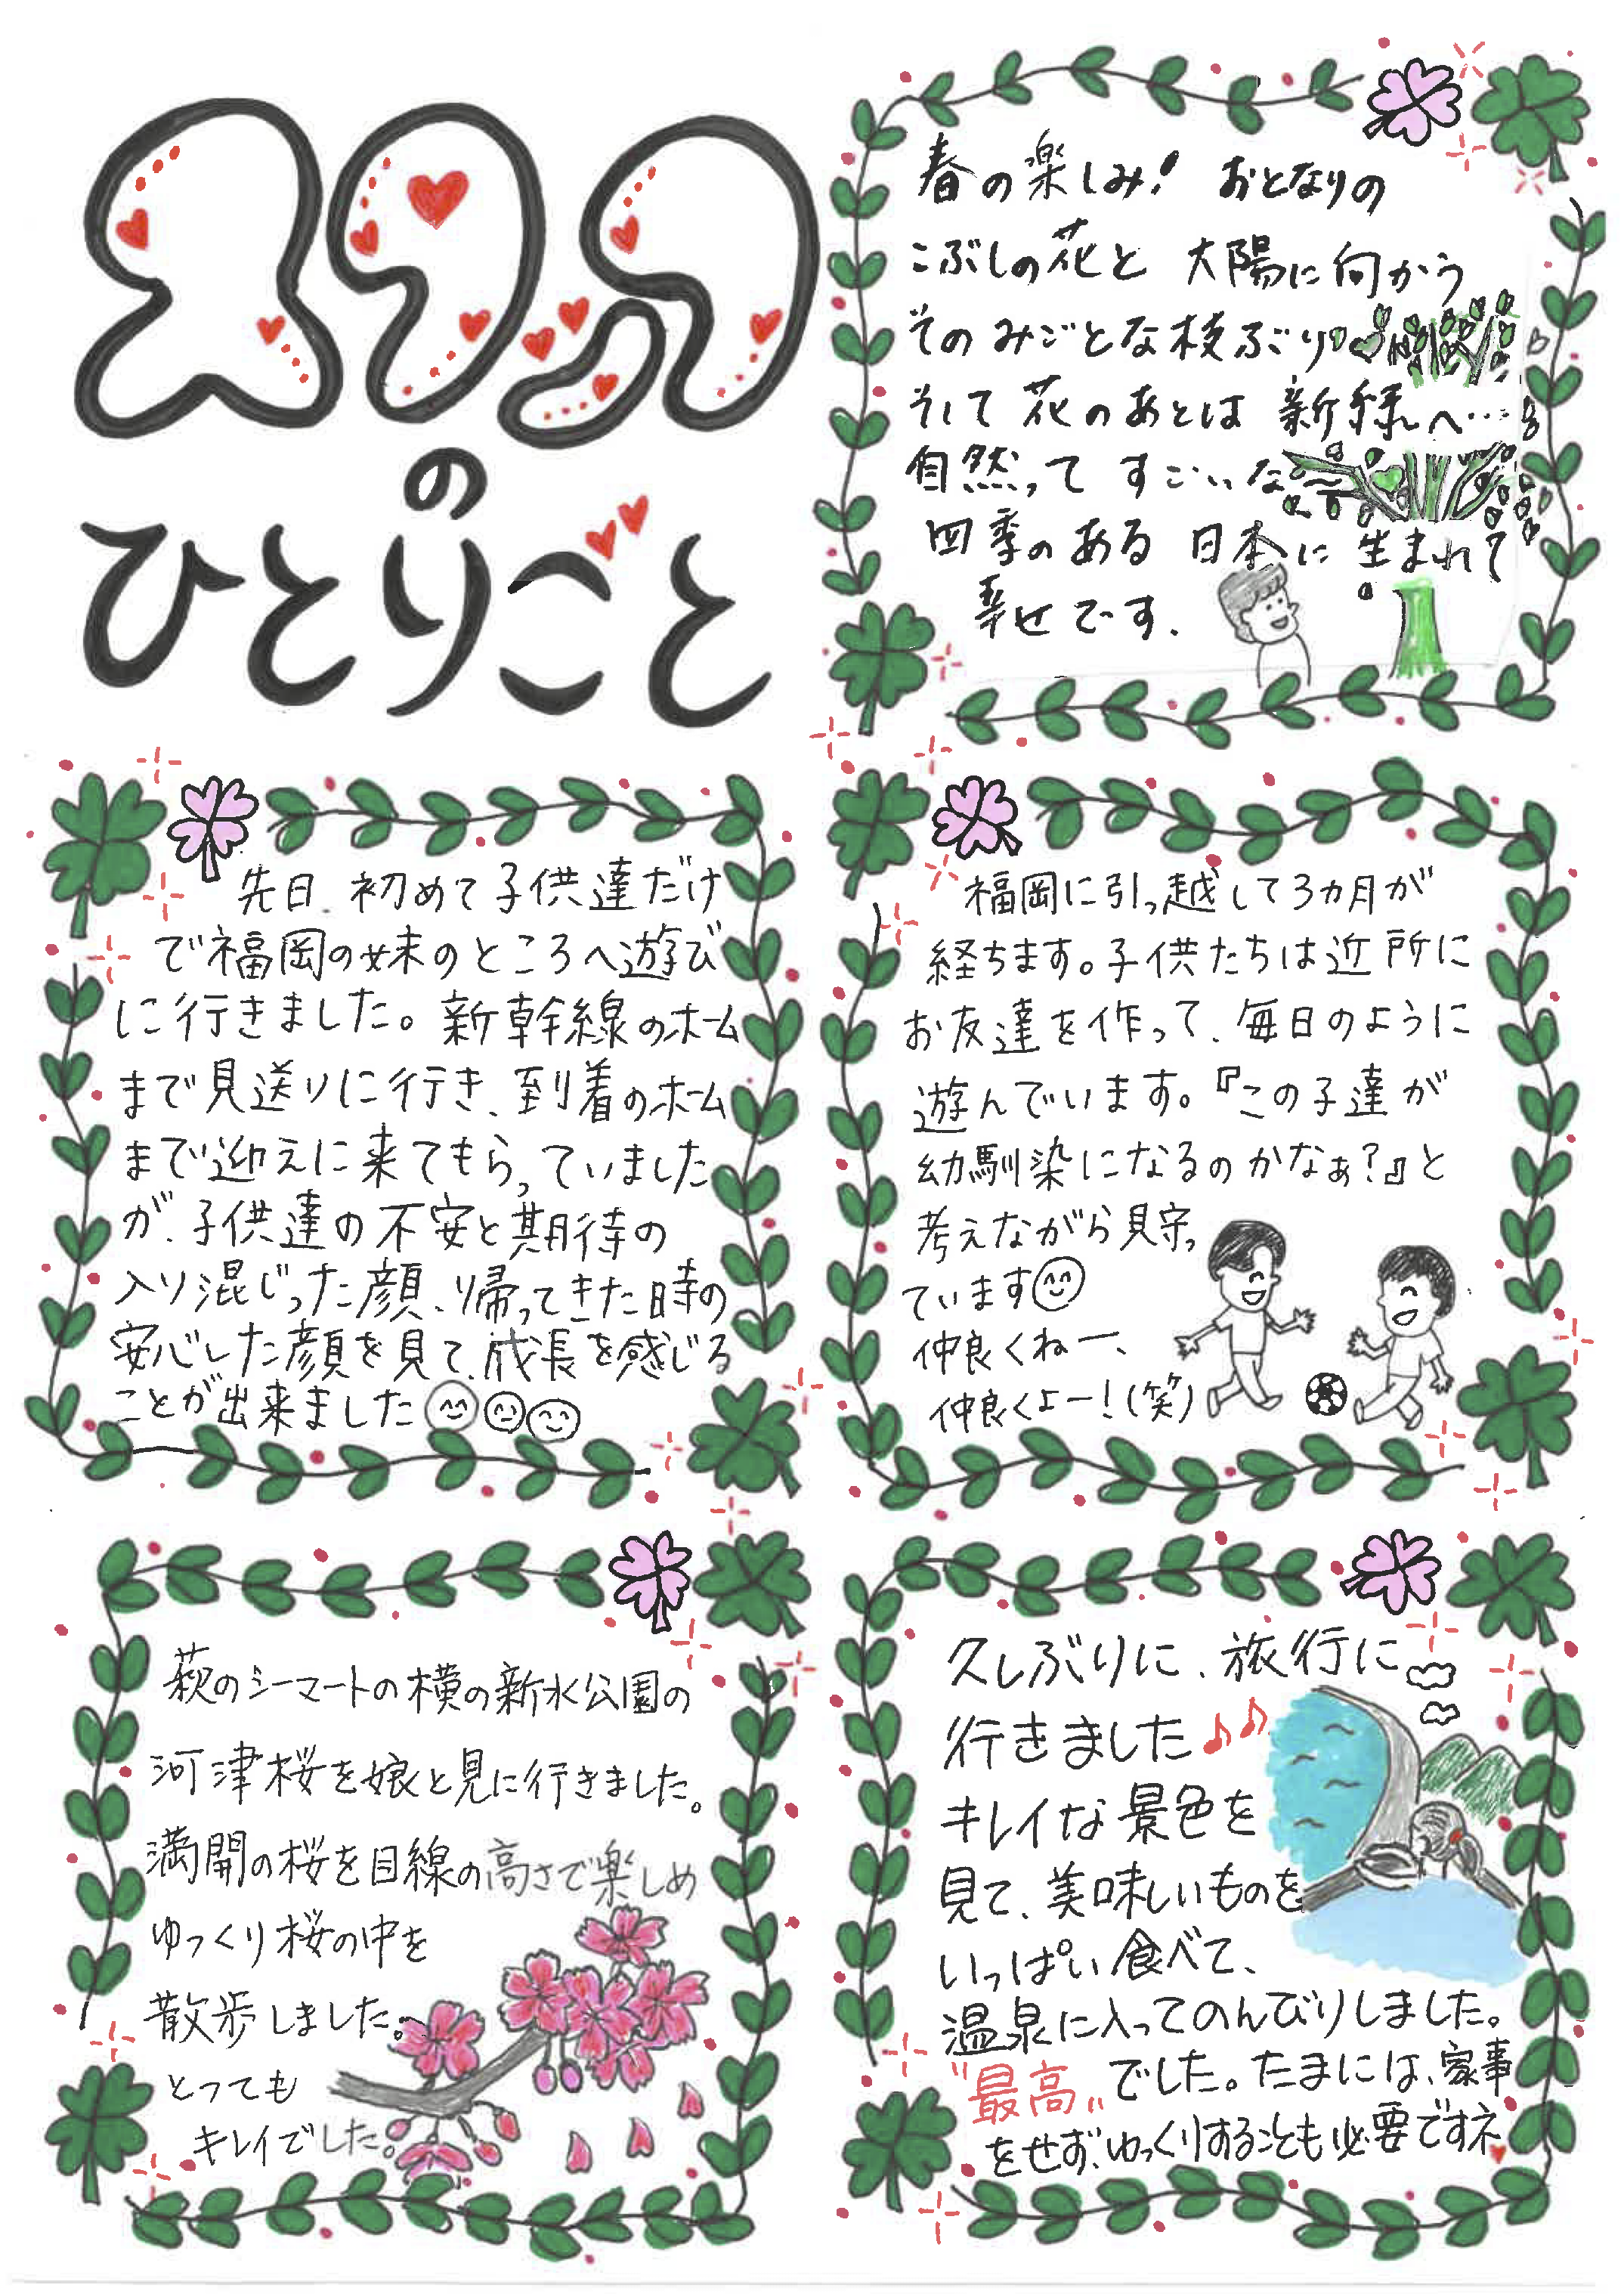 スタッフ
の
ひとりごと
春の楽しみ! おとなりの
こぶしの花と 大陽に向かう
そのみごとな枝ぶり
そして 花のあとは 新緑へ…
自然って すごいな~
四季のある 日本に 生まれて
幸せです.
先日、初めて子供達だけ
で福岡の妹のところへ遊び
に行きました。新幹線のホーム
まで見送りに行き、到着のホーム
まで迎えに来てもらっていました
が、子供達の不安と期待の
入り混じった顔、帰ってきた時の
安心した顔を見て、成長を感じる
ことが出来ました
福岡に引っ越して3ヵ月が
経ちます。子供たちは近所に
お友達を作って、毎日のように
遊んでいます。『この子達が
幼馴染になるのかなぁ?』と
考えながら見守っ
ています
仲良くねー、
仲良くよー!(笑)
萩のシーマートの横の新水公園の
河津桜を娘と見に行きました。
満開の桜を目線の高さで楽しめ
ゆっくり桜の中を
散歩しました。
とっても
キレイでした。
久しぶりに、旅行に
行きました♪♪
キレイな景色を
見て、美味しいものを
いっぱい食べて、
温泉に入ってのんびりしました。
"最高"でした。たまには、家事
をせず、ゆっくりすることも必要ですネ